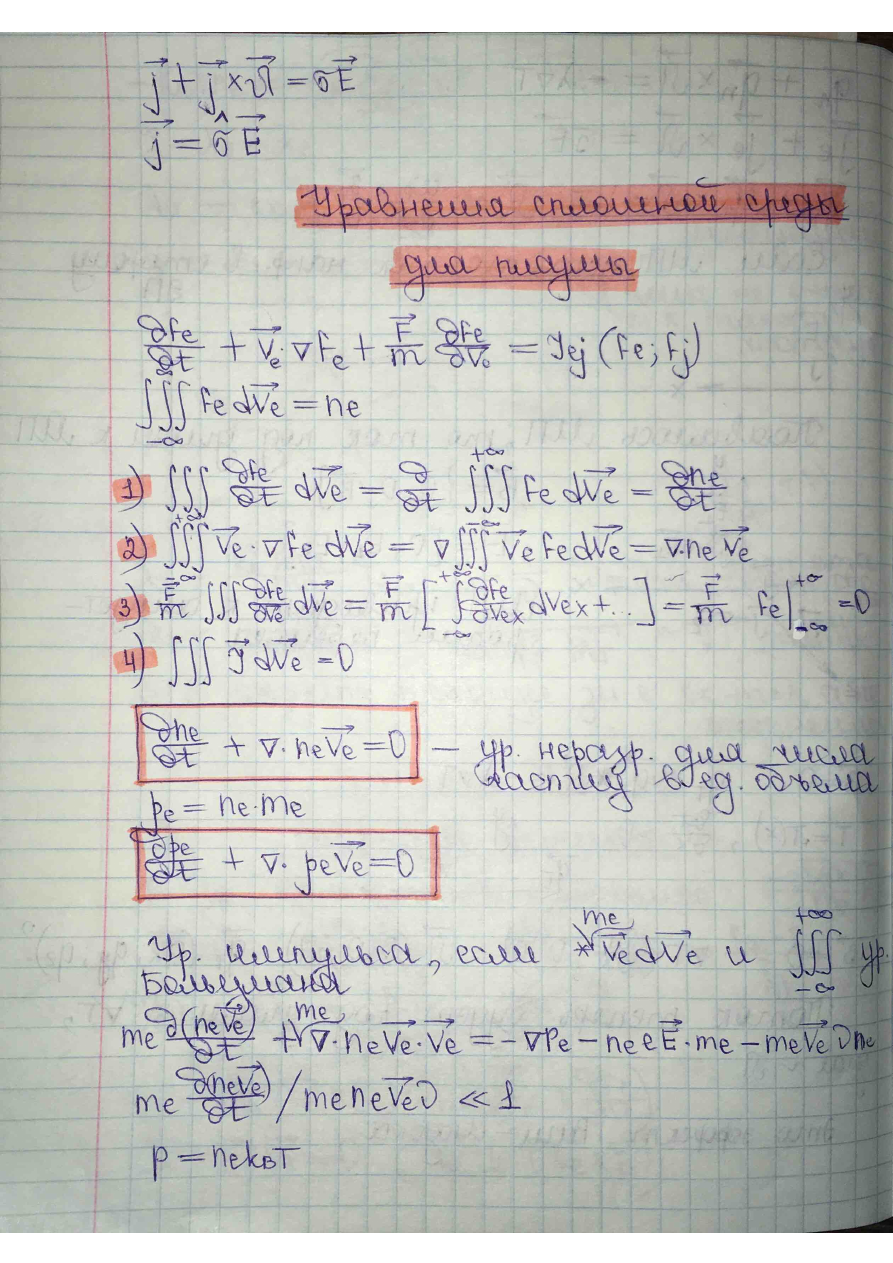 j⃗ + j⃗ × Ω⃗ = σE⃗
j⃗ = σ̂ E⃗
Уравнения сплошной среды
для плазмы
∂fe/∂t + V⃗e · ∇fe + F⃗/m ∂fe/∂Ve = Jej (fe; fj)
∭₋∞^∞ fe dV⃗e = ne
1) ∭ ∂fe/∂t dV⃗e = ∂/∂t ∭₋∞^+∞ fe dV⃗e = ∂ne/∂t
2) ∭₋∞^+∞ V⃗e · ∇fe dV⃗e = ∇∭₋∞^+∞ V⃗e fe dV⃗e = ∇·ne V⃗e
3) F⃗/m ∭ ∂fe/∂V⃗e dV⃗e = F⃗/m [ ∫₋∞^+∞ ∂fe/∂Vex dVex + ... ] = F⃗/m fe|₋∞^+∞ = 0
4) ∭ J⃗ dV⃗e = 0
∂ne/∂t + ∇· neV⃗e = 0 — ур. неразр. для числа
частиц в ед. объема
ρe = ne·me
∂ρe/∂t + ∇· ρeV⃗e = 0
Ур. импульса, если * me V⃗e dV⃗e и ∭₋∞^+∞ ур.
Больцмана
me ∂(neV⃗e)/∂t + me ∇· neV⃗e·V⃗e = -∇Pe - neeE⃗·me - meV⃗e ν ne
me ∂(neV⃗e)/∂t / meneV⃗eν ≪ 1
p = neквT